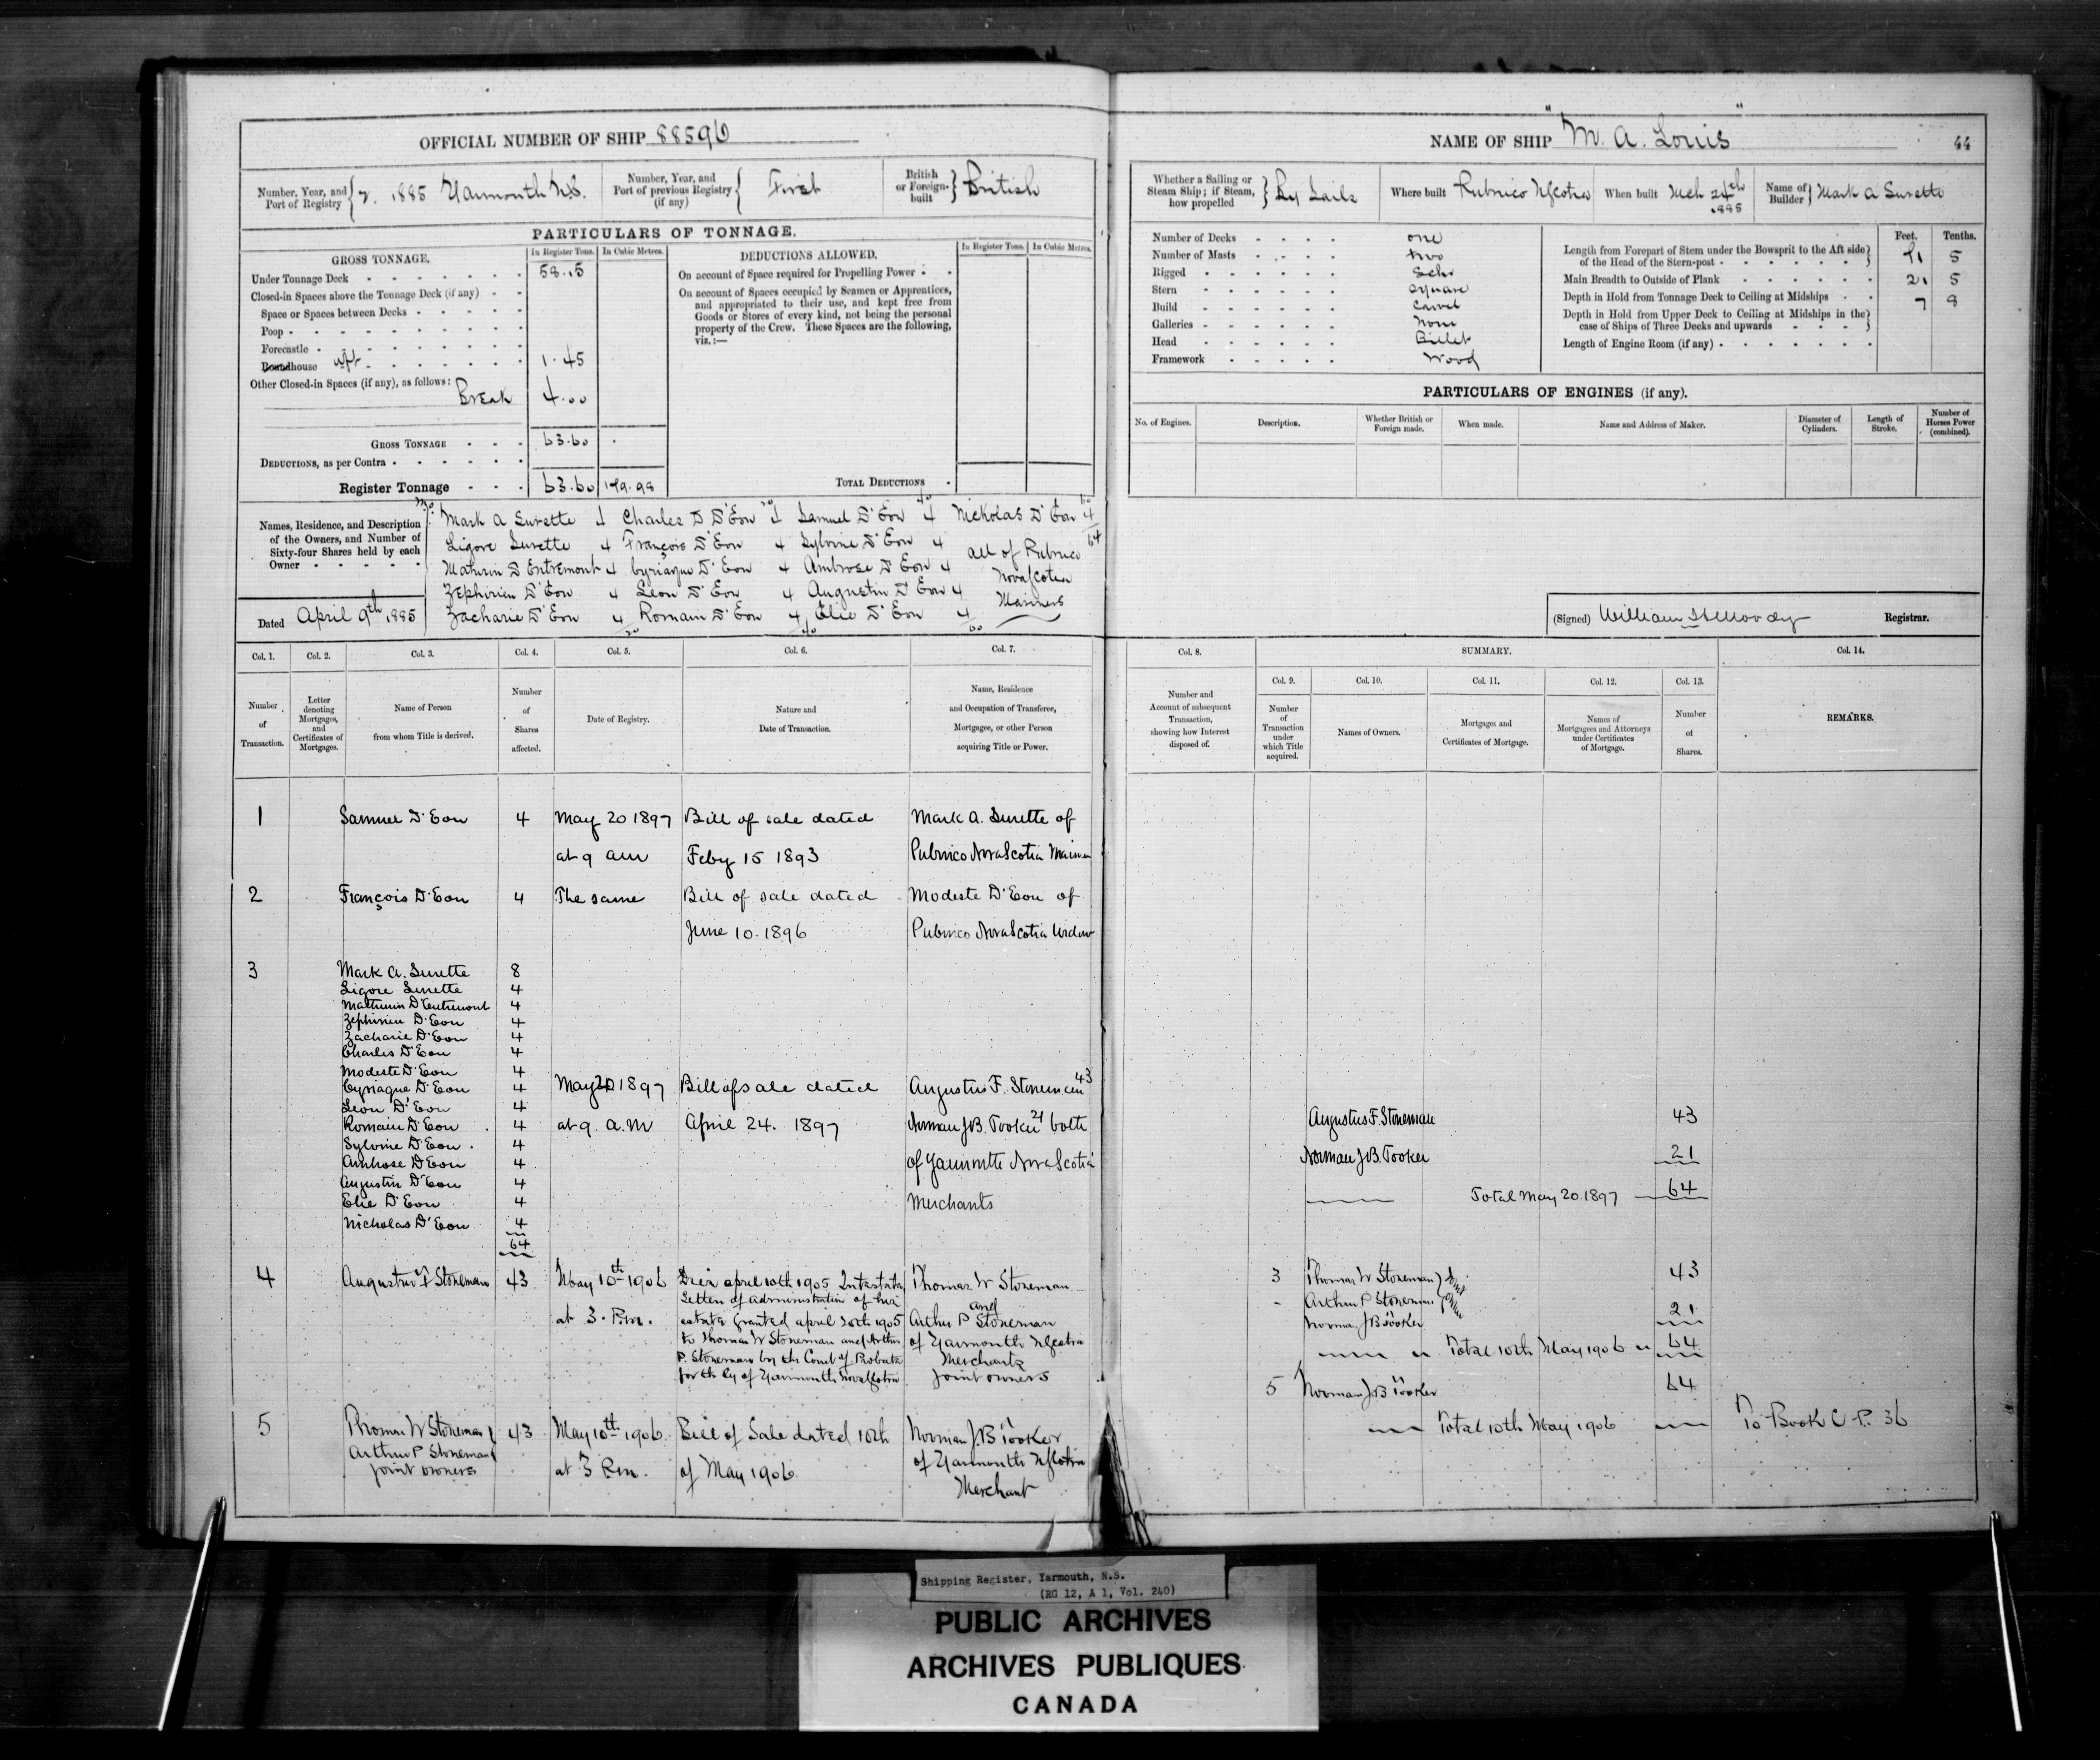 OFFICIAL NUMBER OF SHIP 88596
NAME OF SHIP "M. A. Louis"
44
Number, Year, and Port of Registry { 7. 1885 Yarmouth N.S.
Number, Year, and Port of previous Registry (if any) { First
British or Foreign-built } British
Whether a Sailing or Steam Ship; if Steam, how propelled } By Sails
Where built Pubnico NScotia
When built Mch 24th 1885
Name of Builder } Mark A Surette
PARTICULARS OF TONNAGE.
GROSS TONNAGE.
In Register Tons. In Cubic Metres.
Under Tonnage Deck 58.15
Closed-in Spaces above the Tonnage Deck (if any)
Space or Spaces between Decks
Poop
Forecastle
Roundhouse 1.45
Other Closed-in Spaces (if any), as follows:
Break 4.00
GROSS TONNAGE 63.60
DEDUCTIONS, as per Contra
Register Tonnage 63.60 179.98
DEDUCTIONS ALLOWED.
In Register Tons. In Cubic Metres.
On account of Space required for Propelling Power
On account of Spaces occupied by Seamen or Apprentices,
and appropriated to their use, and kept free from
Goods or Stores of every kind, not being the personal
property of the Crew. These Spaces are the following,
viz.:—
TOTAL DEDUCTIONS
Number of Decks one
Number of Masts two
Rigged Schr
Stern Square
Build Carvel
Galleries None
Head Billet
Framework Wood
Feet. Tenths.
Length from Forepart of Stem under the Bowsprit to the Aft side
of the Head of the Stern-post 5
Main Breadth to Outside of Plank 21 5
Depth in Hold from Tonnage Deck to Ceiling at Midships 7 8
Depth in Hold from Upper Deck to Ceiling at Midships in the
case of Ships of Three Decks and upwards
Length of Engine Room (if any)
PARTICULARS OF ENGINES (if any).
No. of Engines. Description. Whether British or Foreign made. When made. Name and Address of Maker. Diameter of Cylinders. Length of Stroke. Number of Horses Power (combined).
Names, Residence, and Description
of the Owners, and Number of
Sixty-four Shares held by each
Owner
Mark A Surette 4 Charles D D'Eon 4 Samuel D'Eon 4 Nickolas D'Eon 4
Ligore Surette 4 François D'Eon 4 Sylvine D'Eon 4 all of Pubnico 64
Mathurin D Entremont 4 Cyriaque D'Eon 4 Ambrose D'Eon 4 Nova Scotia
Zephirien D'Eon 4 Leon D'Eon 4 Augustin D'Eon 4 Mariners
Zacharie D'Eon 4 Romain D'Eon 4 Elie D'Eon 4
Dated April 9th 1885
(Signed) William H Moody Registrar.
Col. 1. Col. 2. Col. 3. Col. 4. Col. 5. Col. 6. Col. 7. Col. 8. SUMMARY. Col. 14.
Col. 9. Col. 10. Col. 11. Col. 12. Col. 13.
Number of Transaction.
Letter denoting Mortgages, and Certificates of Mortgages.
Name of Person from whom Title is derived.
Number of Shares affected.
Date of Registry.
Nature and Date of Transaction.
Name, Residence and Occupation of Transferee, Mortgagee, or other Person acquiring Title or Power.
Number and Account of subsequent Transaction, showing how Interest disposed of.
Number of Transaction under which Title acquired.
Names of Owners.
Mortgages and Certificates of Mortgage.
Names of Mortgagees and Attorneys under Certificates of Mortgage.
Number of Shares.
REMARKS.
1 Samuel D'Eon 4 May 20 1897 Bill of sale dated Mark A. Surette of
at 9 am Feby 15 1893 Pubnico Nova Scotia Mariner
2 François D'Eon 4 The same Bill of sale dated Modeste D'Eon of
June 10. 1896 Pubnico Nova Scotia Widow
3 Mark A. Surette 8
Ligore Surette 4
Mathurin D'Entremont 4
Zephirien D'Eon 4
Zacharie D'Eon 4
Charles D'Eon 4
Modeste D'Eon 4
Cyriaque D'Eon 4 May 20 1897 Bill of sale dated Augustus F. Stoneman 43
Leon D'Eon 4
Romain D'Eon 4 at 9. a.m April 24. 1897 Norman J B. Tooker 21 both
Sylvine D'Eon 4
Ambrose D'Eon 4 of Yarmouth Nova Scotia
Augustin D'Eon 4
Elie D'Eon 4 Merchants
Nicholas D'Eon 4
64
Augustus F. Stoneman 43
Norman J B. Tooker 21
Total May 20 1897 64
4 Augustus F Stoneman 43 May 10th 1906 Died april 10th 1905 Intestate Thomas W Stoneman
Letters of administration of his and
at 3. P.m. estate granted april 20th 1905 Arthur P Stoneman
to Thomas W Stoneman and Arthur of Yarmouth NScotia
P. Stoneman by the Court of Probate Merchants
for the Cy of Yarmouth Nova Scotia Joint owners
3 Thomas W Stoneman } 43
Arthur P Stoneman }
Norman J B Tooker 21
Total 10th May 1906 64
5 Norman J. B Tooker 64
Total 10th May 1906 To Book C P. 36
5 Thomas W Stoneman } 43 May 10th 1906 Bill of Sale dated 10th Norman J. B Tooker
Arthur P Stoneman of Yarmouth NScotia
Joint owners at 3 P.m. of May 1906 Merchant
Shipping Register, Yarmouth, N.S.
(RG 12, A 1, Vol. 240)
PUBLIC ARCHIVES
ARCHIVES PUBLIQUES
CANADA